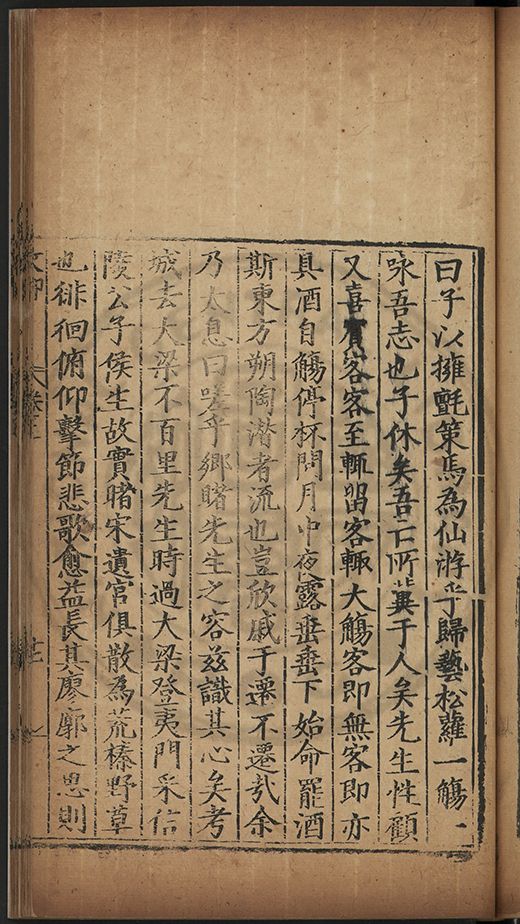 曰子以擁氈策馬為仙游乎歸藝松蘿一觴一
咏吾志也子休矣吾亡所冀于人矣先生性顧
又喜賓客客至輒留客輒大觴客即無客即亦
具酒自觴停杯問月中夜露垂垂下始命罷酒
斯東方朔陶潛者流也豈欣戚于遷不遷哉余
乃太息曰嗟乎鄉睹先生之容茲識其心矣考
城去大梁不百里先生時過大梁登夷門采信
陵公子侯生故實睹宋遺宮俱散為荒榛野草
也徘徊俯仰擊節悲歌愈益長其廖廓之思則